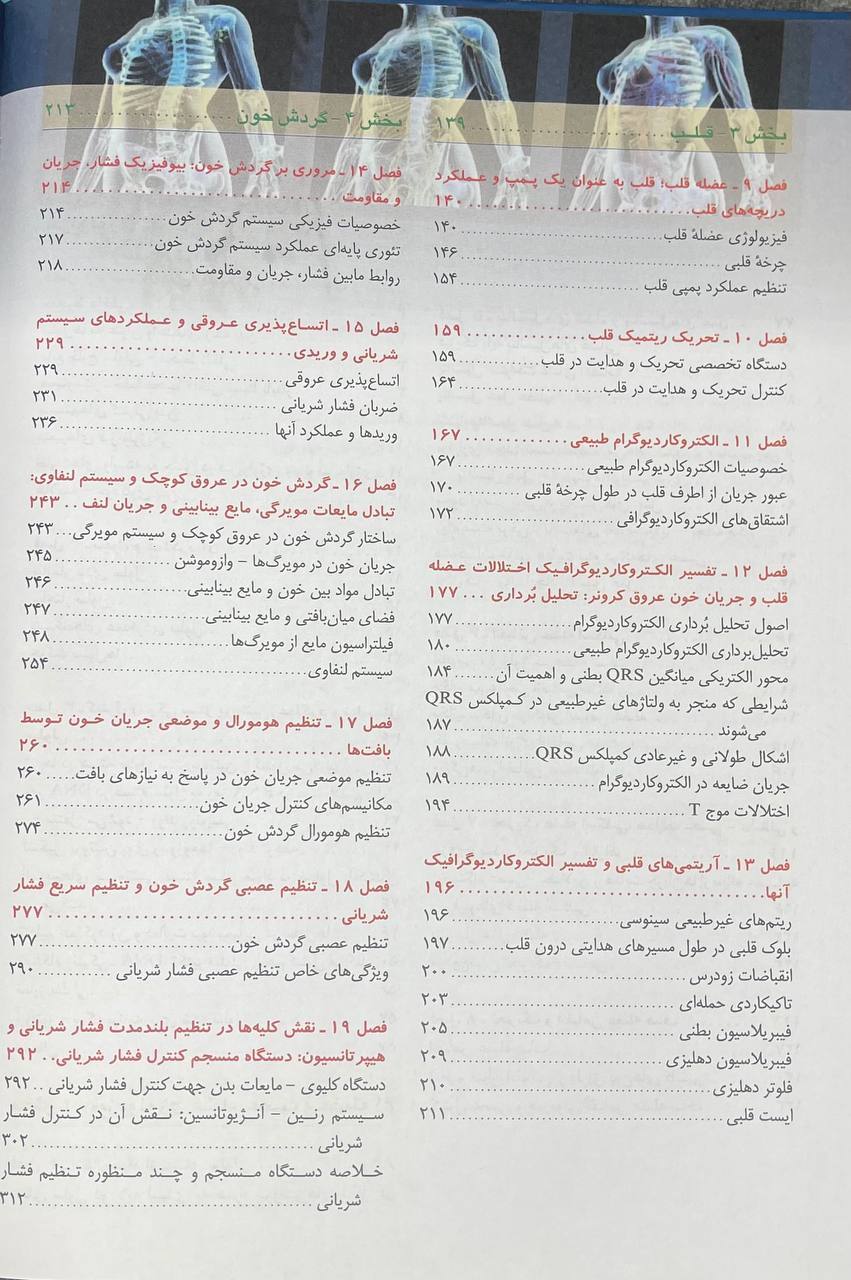 بخش ۳- قلب ........ ۱۳۹
فصل ۹ ـ عضله قلب؛ قلب به عنوان یک پمپ و عملکرد
دریچه‌های قلب ........ ۱۴۰
فیزیولوژی عضلهٔ قلب ........ ۱۴۰
چرخهٔ قلبی ........ ۱۴۶
تنظیم عملکرد پمپی قلب ........ ۱۵۴
فصل ۱۰ ـ تحریک ریتمیک قلب ........ ۱۵۹
دستگاه تخصصی تحریک و هدایت در قلب ........ ۱۵۹
کنترل تحریک و هدایت در قلب ........ ۱۶۴
فصل ۱۱ ـ الکتروکاردیوگرام طبیعی ........ ۱۶۷
خصوصیات الکتروکاردیوگرام طبیعی ........ ۱۶۷
عبور جریان از اطرف قلب در طول چرخهٔ قلبی ........ ۱۷۰
اشتقاق‌های الکتروکاردیوگرافی ........ ۱۷۲
فصل ۱۲ ـ تفسیر الکتروکاردیوگرافیک اختلالات عضله
قلب و جریان خون عروق کرونر: تحلیل بُرداری ... ۱۷۷
اصول تحلیل بُرداری الکتروکاردیوگرام ........ ۱۷۷
تحلیل‌برداری الکتروکاردیوگرام طبیعی ........ ۱۸۰
محور الکتریکی میانگین QRS بطنی و اهمیت آن ........ ۱۸۴
شرایطی که منجر به ولتاژهای غیرطبیعی در کمپلکس QRS
می‌شوند ........ ۱۸۷
اشکال طولانی و غیرعادی کمپلکس QRS ........ ۱۸۸
جریان ضایعه در الکتروکاردیوگرام ........ ۱۸۹
اختلالات موج T ........ ۱۹۴
فصل ۱۳ ـ آریتمی‌های قلبی و تفسیر الکتروکاردیوگرافیک
آنها ........ ۱۹۶
ریتم‌های غیرطبیعی سینوسی ........ ۱۹۶
بلوک قلبی در طول مسیرهای هدایتی درون قلب ........ ۱۹۷
انقباضات زودرس ........ ۲۰۰
تاکیکاردی حمله‌ای ........ ۲۰۳
فیبریلاسیون بطنی ........ ۲۰۵
فیبریلاسیون دهلیزی ........ ۲۰۹
فلوتر دهلیزی ........ ۲۱۰
ایست قلبی ........ ۲۱۱
بخش ۴- گردش خون ........ ۲۱۳
فصل ۱۴ ـ مروری بر گردش خون: بیوفیزیک فشار، جریان
و مقاومت ........ ۲۱۴
خصوصیات فیزیکی سیستم گردش خون ........ ۲۱۴
تئوری پایه‌ای عملکرد سیستم گردش خون ........ ۲۱۷
روابط مابین فشار، جریان و مقاومت ........ ۲۱۸
فصل ۱۵ ـ اتساع‌پذیری عروقی و عملکردهای سیستم
شریانی و وریدی ........ ۲۲۹
اتساع‌پذیری عروقی ........ ۲۲۹
ضربان فشار شریانی ........ ۲۳۱
وریدها و عملکرد آنها ........ ۲۳۶
فصل ۱۶ ـ گردش خون در عروق کوچک و سیستم لنفاوی:
تبادل مایعات مویرگی، مایع بینابینی و جریان لنف .. ۲۴۳
ساختار گردش خون در عروق کوچک و سیستم مویرگی ... ۲۴۳
جریان خون در مویرگ‌ها – وازوموشن ........ ۲۴۵
تبادل مواد بین خون و مایع بینابینی ........ ۲۴۶
فضای میان‌بافتی و مایع بینابینی ........ ۲۴۷
فیلتراسیون مایع از مویرگ‌ها ........ ۲۴۸
سیستم لنفاوی ........ ۲۵۴
فصل ۱۷ ـ تنظیم هومورال و موضعی جریان خون توسط
بافت‌ها ........ ۲۶۰
تنظیم موضعی جریان خون در پاسخ به نیازهای بافت ..... ۲۶۰
مکانیسم‌های کنترل جریان خون ........ ۲۶۱
تنظیم هومورال گردش خون ........ ۲۷۴
فصل ۱۸ ـ تنظیم عصبی گردش خون و تنظیم سریع فشار
شریانی ........ ۲۷۷
تنظیم عصبی گردش خون ........ ۲۷۷
ویژگی‌های خاص تنظیم عصبی فشار شریانی ........ ۲۹۰
فصل ۱۹ ـ نقش کلیه‌ها در تنظیم بلندمدت فشار شریانی و
هیپرتانسیون: دستگاه منسجم کنترل فشار شریانی .. ۲۹۲
دستگاه کلیوی – مایعات بدن جهت کنترل فشار شریانی .. ۲۹۲
سیستم رنین – آنژیوتانسین: نقش آن در کنترل فشار
شریانی ........ ۳۰۲
خلاصه دستگاه منسجم و چند منظوره تنظیم فشار
شریانی ........ ۳۱۲